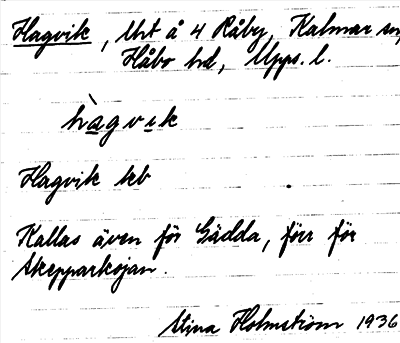 Hagvik, Urt å 4 Råby, Kalmar sn,
Håbo hd, Upps. l.
hàgvik
Hagvik krb
Kallas även för Gädda, förr för
Skepparkojan.
Stina Holmström 1936